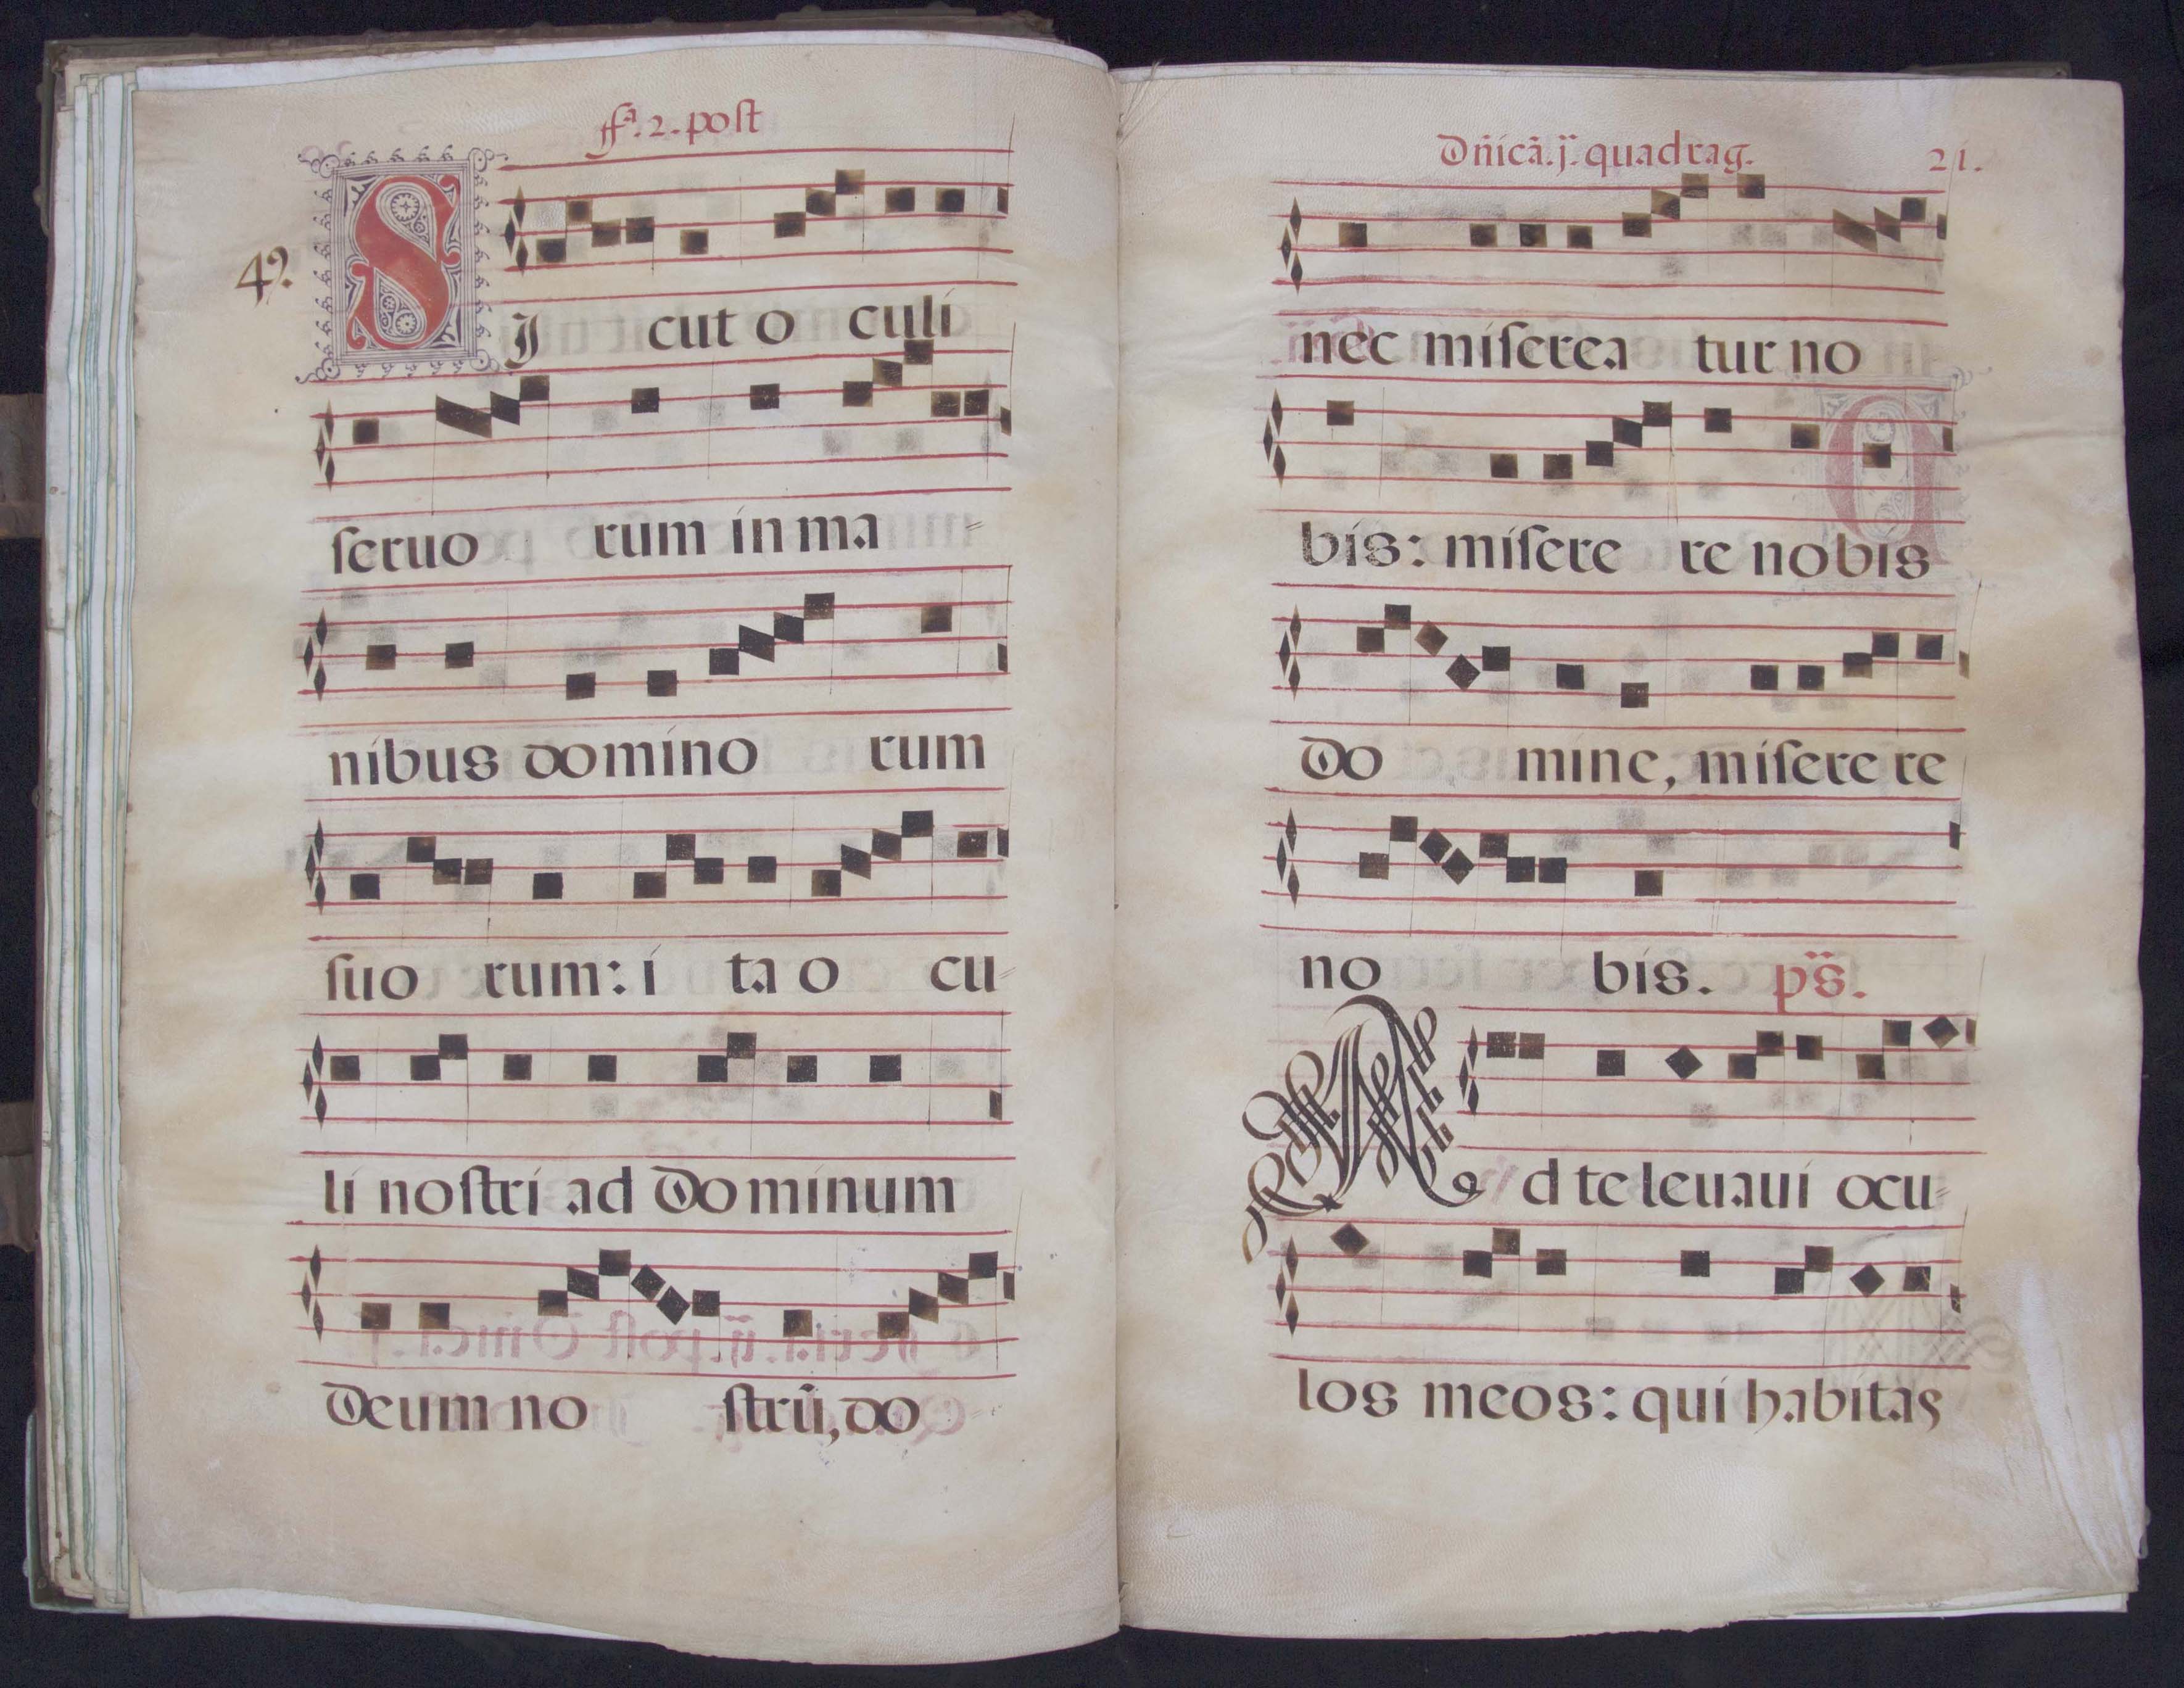 ffᵃ. 2. post
4º.
SI cut o culi
seruo rum in ma-
nibus domino rum
suo rum: i ta o cu-
li nostri ad Dominum
Deum no strū, do
Dn̄icā. j. quadrag. 21.
nec miserea tur no
bis: misere re nobis
Do mine, misere re
no bis. ps̄.
Ad te leuaui ocu-
los meos: qui habitas